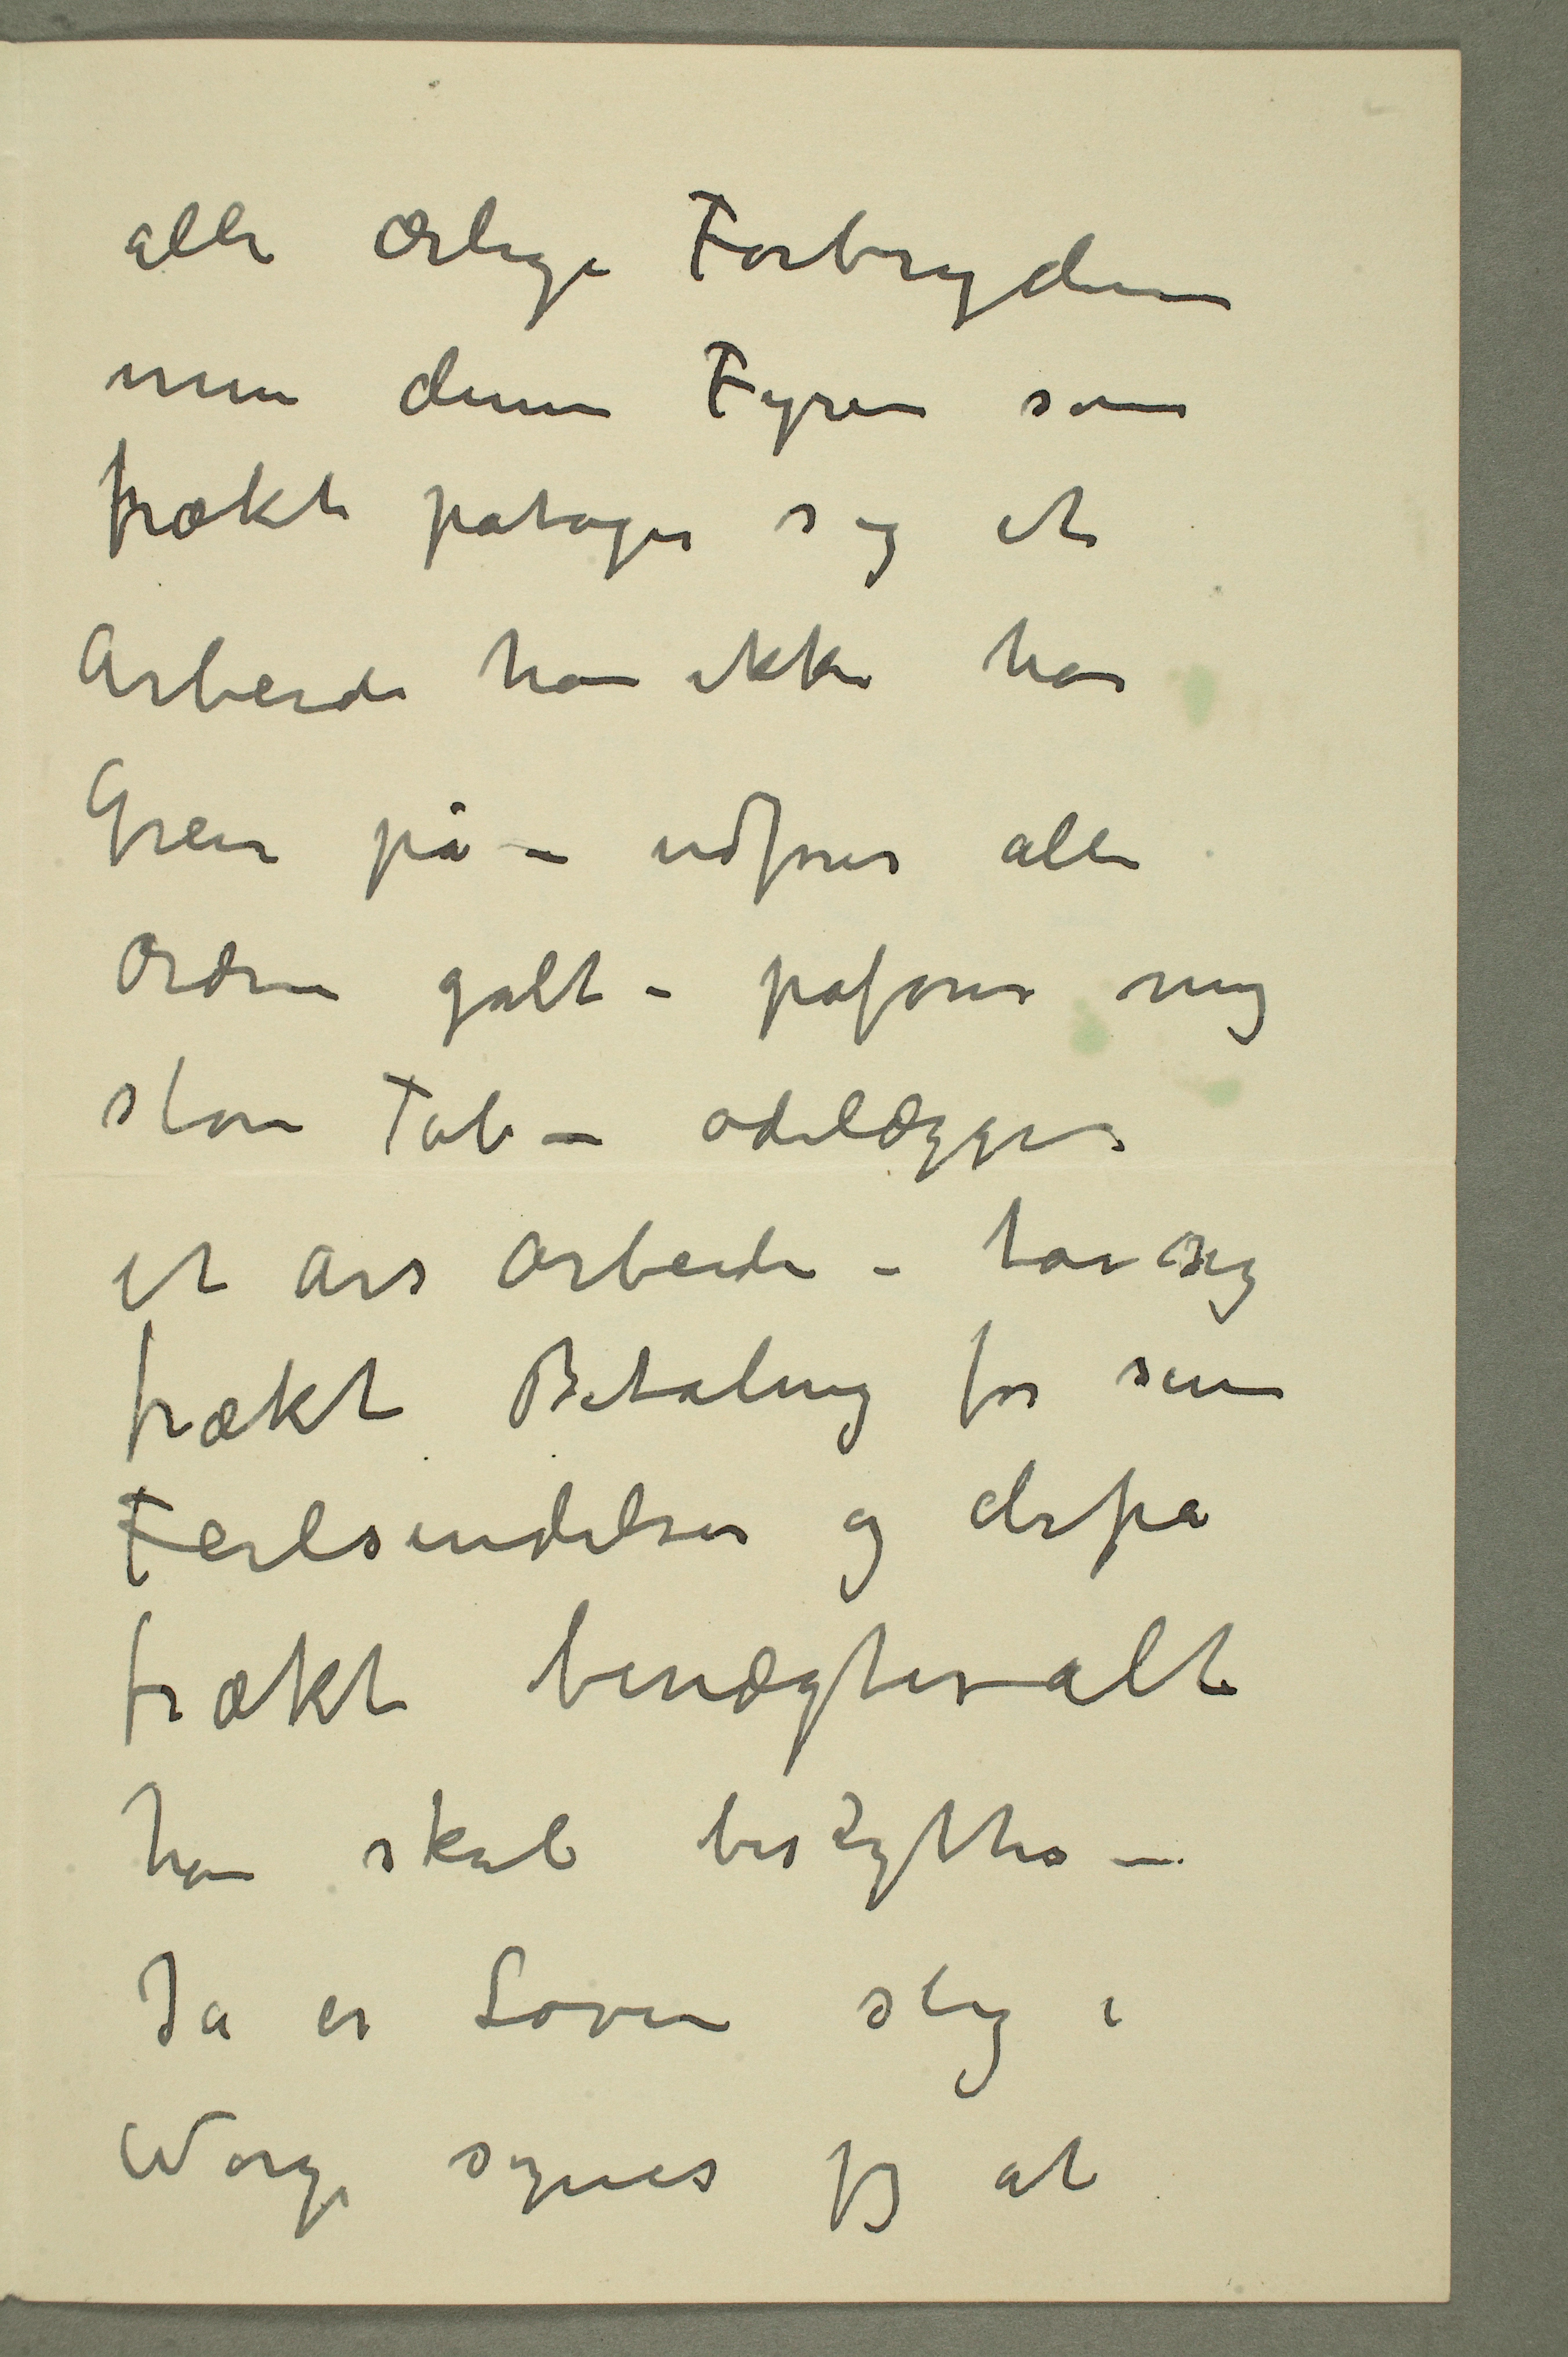 alle ærlige Forbrydere
men denne Fyren som
frækt påtager sig et
Arbeide han ikke har
Greie på – udfører alle
Ordrer galt – påfører mig
store Tab – ødelægger
et års Arbeide – tar sig
frækt Betaling for sine
Feilsendelser og derpå
frækt benægter alt
han skal beskyttes –
Ja er Loven slig i
Norge synes jeg at